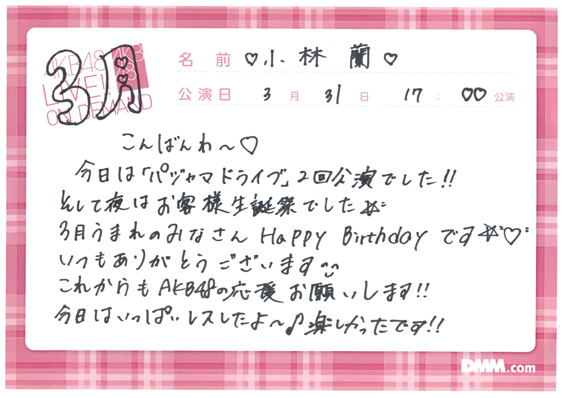 AKB48
LIVE!!
ON DEMAND
3月
名前 ♡小林 蘭♡
公演日 3月31日 17:00公演
こんばんわ〜♡
今日は「パジャマドライブ」2回公演でした!!
そして夜はお客様生誕祭でした☆
3月うまれのみなさん Happy Birthday です☆♡
いつもありがとうございます
これからもAKB48の応援お願いします!!
今日はいっぱいレスしたよ〜♪楽しかったです!!
DMM.com